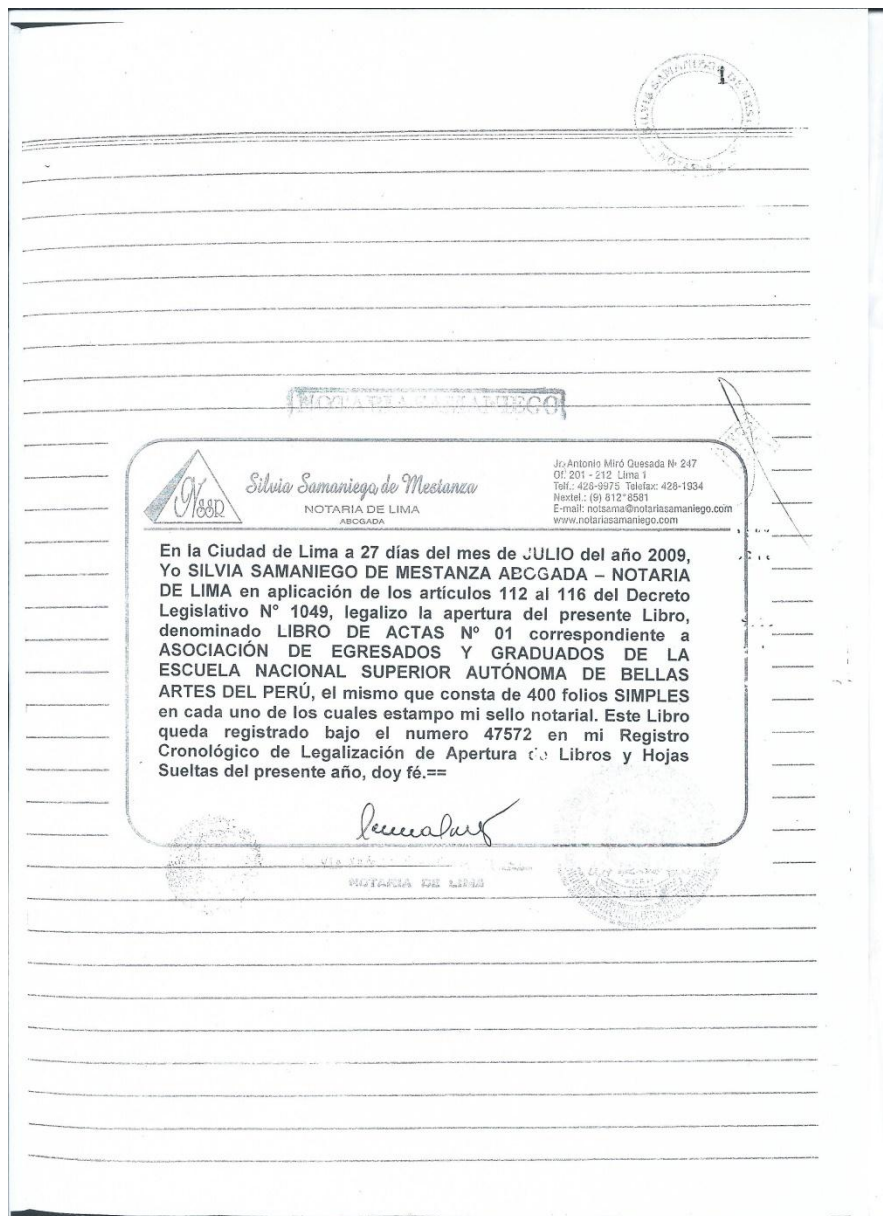 1
SILVIA SAMANIEGO DE
NOTARIA SAMANIEGO
Silvia Samaniego de Mestanza
NOTARIA DE LIMA
ABOGADA
Jr. Antonio Miró Quesada Nº 247
Of. 201 - 212 Lima 1
Telf.: 428-9975 Telefax: 428-1934
Nextel.: (9) 812*8581
E-mail: notsama@notariasamaniego.com
www.notariasamaniego.com
En la Ciudad de Lima a 27 días del mes de JULIO del año 2009,
Yo SILVIA SAMANIEGO DE MESTANZA ABOGADA – NOTARIA
DE LIMA en aplicación de los artículos 112 al 116 del Decreto
Legislativo N° 1049, legalizo la apertura del presente Libro,
denominado LIBRO DE ACTAS Nº 01 correspondiente a
ASOCIACIÓN DE EGRESADOS Y GRADUADOS DE LA
ESCUELA NACIONAL SUPERIOR AUTÓNOMA DE BELLAS
ARTES DEL PERÚ, el mismo que consta de 400 folios SIMPLES
en cada uno de los cuales estampo mi sello notarial. Este Libro
queda registrado bajo el numero 47572 en mi Registro
Cronológico de Legalización de Apertura de Libros y Hojas
Sueltas del presente año, doy fé.==
NOTARIA DE LIMA